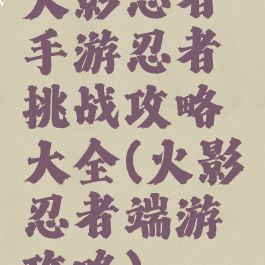 火影忍者
手游忍者
挑战攻略
大全(火影
忍者端游
攻略)